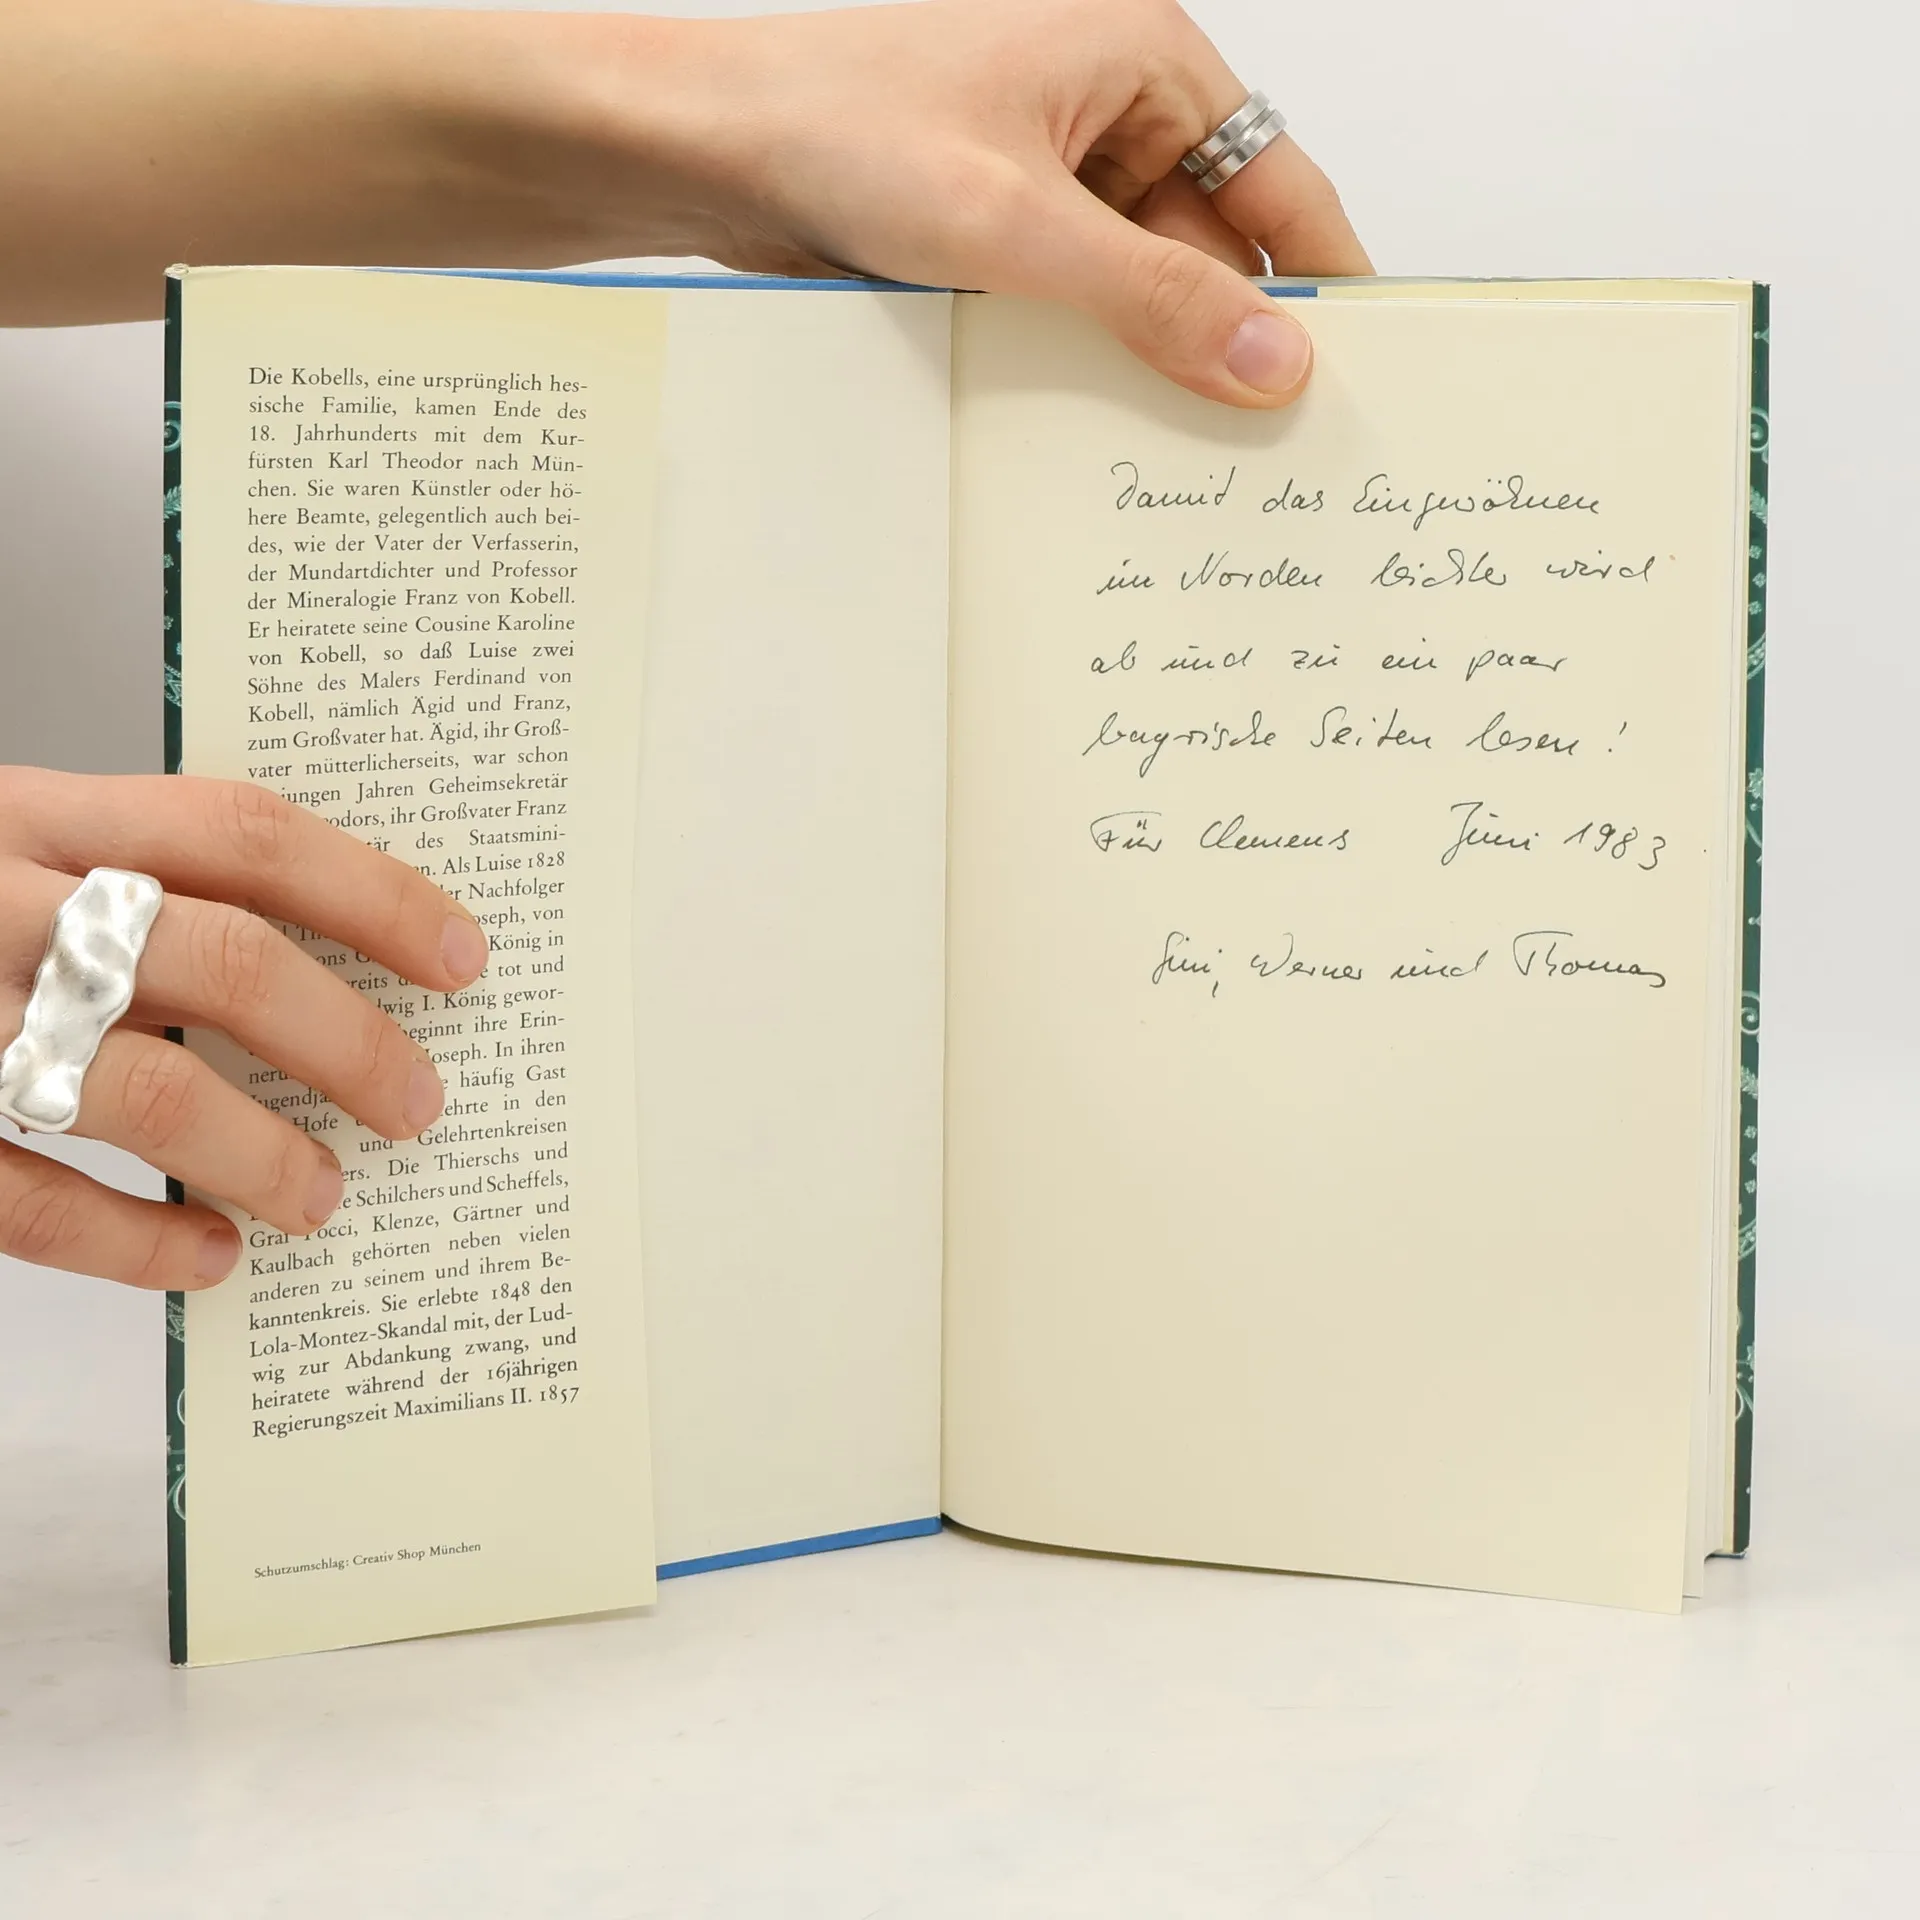 Die Kobells, eine ursprünglich hes-
sische Familie, kamen Ende des
18. Jahrhunderts mit dem Kur-
fürsten Karl Theodor nach Mün-
chen. Sie waren Künstler oder hö-
here Beamte, gelegentlich auch bei-
des, wie der Vater der Verfasserin,
der Mundartdichter und Professor
der Mineralogie Franz von Kobell.
Er heiratete seine Cousine Karoline
von Kobell, so daß Luise zwei
Söhne des Malers Ferdinand von
Kobell, nämlich Ägid und Franz,
zum Großvater hat. Ägid, ihr Groß-
vater mütterlicherseits, war schon
jungen Jahren Geheimsekretär
odors, ihr Großvater Franz
tär des Staatsmini-
n. Als Luise 1828
er Nachfolger
oseph, von
König in
tot und
wig I. König gewor-
beginnt ihre Erin-
Joseph. In ihren
häufig Gast
Hofe ehrte in den
und Gelehrtenkreisen
ers. Die Thierschs und
Schilchers und Scheffels,
Graf Pocci, Klenze, Gärtner und
Kaulbach gehörten neben vielen
anderen zu seinem und ihrem Be-
kanntenkreis. Sie erlebte 1848 den
Lola-Montez-Skandal mit, der Lud-
wig zur Abdankung zwang, und
heiratete während der 16jährigen
Regierungszeit Maximilians II. 1857
Schutzumschlag: Creativ Shop München
Damit das Eingewöhnen
im Norden leichter wird
ab und zu ein paar
bayrische Seiten lesen!
Für Clemens Juni 1983
Werner und Thomas